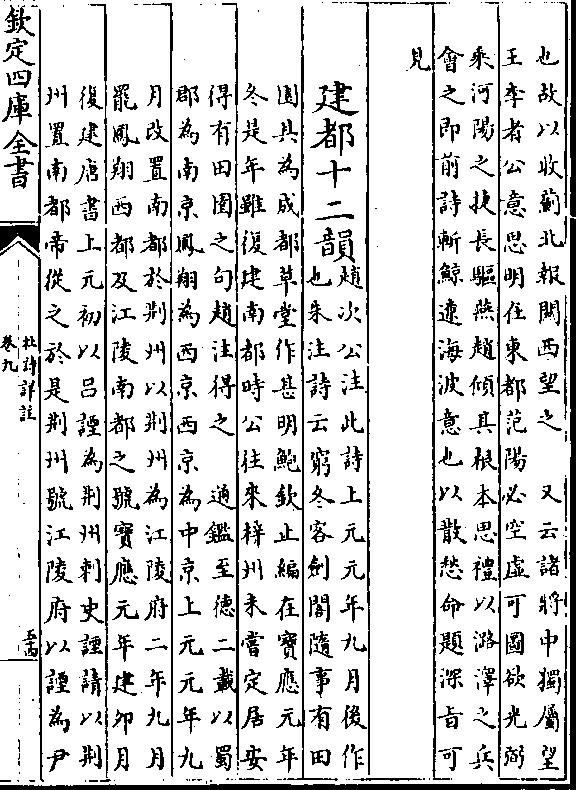 也故以收薊北報關西望之　又云諸將中獨屬望
王李者公意思明在東都范陽必空虛可圖欲光弼
乘河陽之捷長驅燕趙傾其根本思禮以潞澤之兵
會之即前詩斬鯨遼海波意也以散愁命題深旨可
見
建都十二韻
趙次公注此詩上元元年九月後作
也朱注詩云窮冬客劍閣隨事有田
園其為成都草堂作甚明鮑欽止編在寶應元年
冬是年雖復建南都時公往來梓州未嘗定居安
得有田園之句趙注得之　通鑑至德二載以蜀
郡為南京鳳翔為西京西京為中京上元元年九
月改置南都於荆州以荆州為江陵府二年九月
罷鳳翔西都及江陵南都之號寶應元年建卯月
復建唐書上元初以呂諲為荆州刺史諲請以荆
州置南都帝從之於是荆州號江陵府以諲為尹
欽定四庫全書
杜詩詳註
卷九
五十四